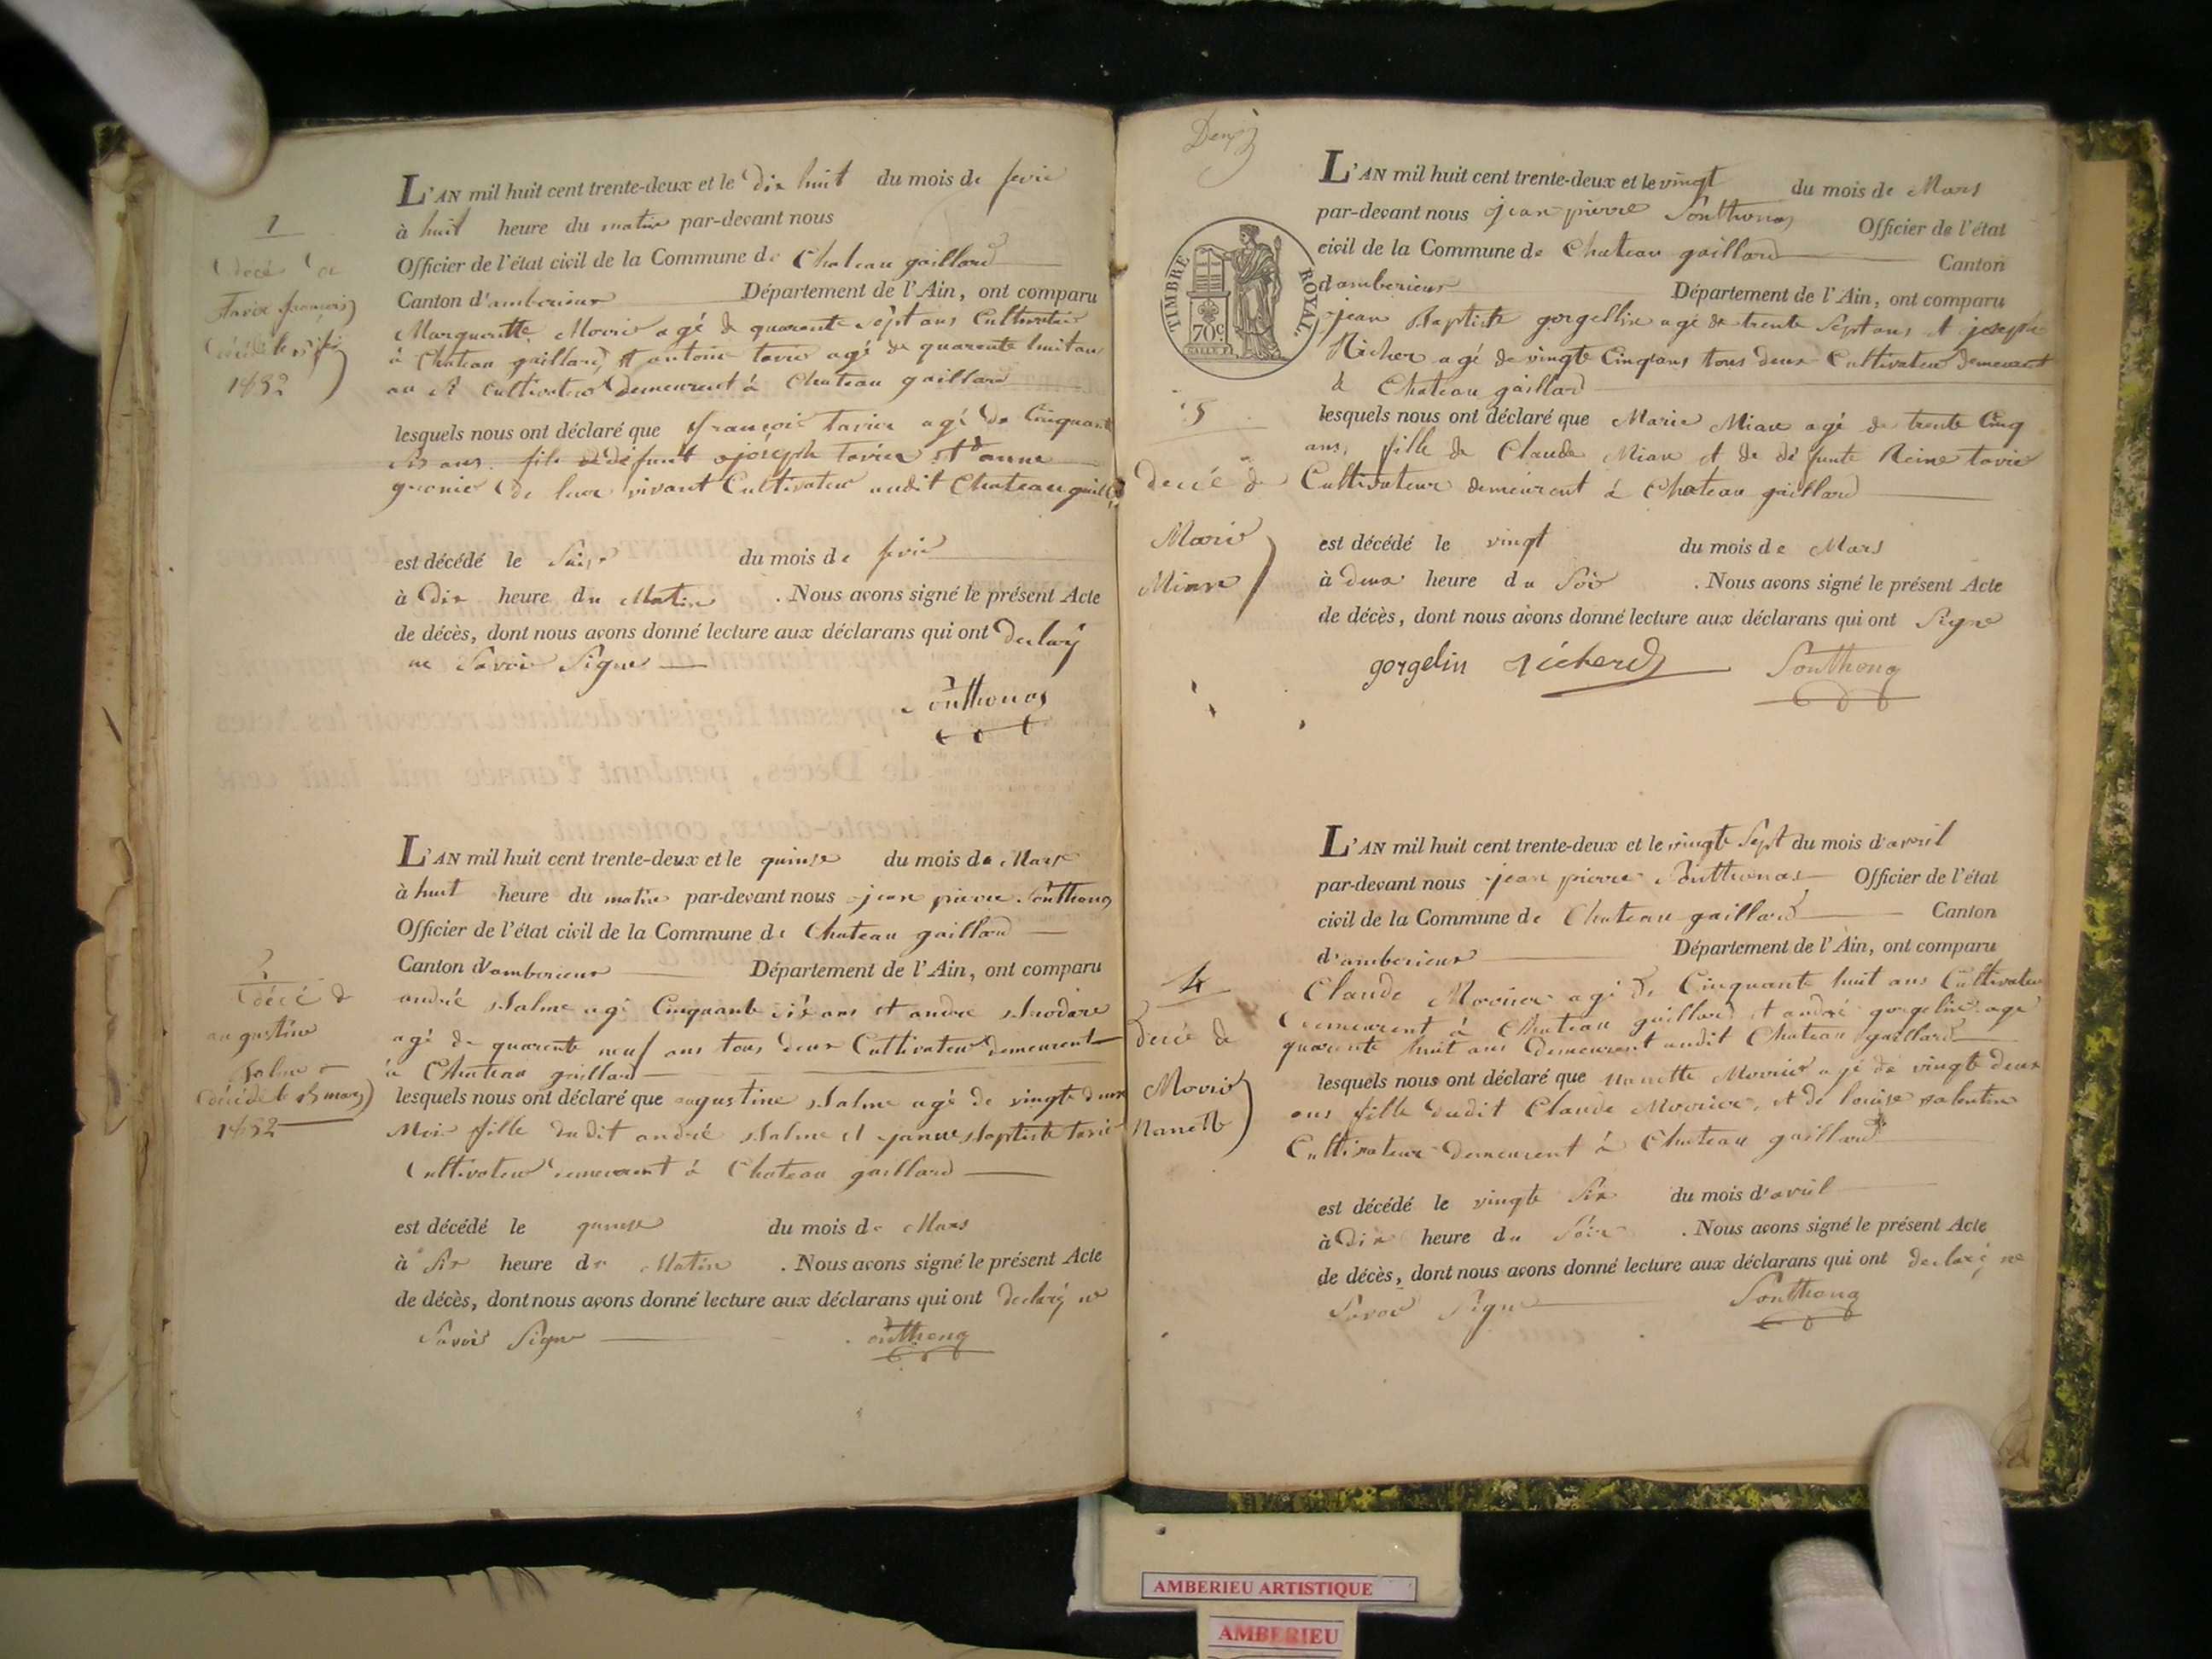 1
décé de
Tavie françois
1832
L'AN mil huit cent trente-deux et le dix huit du mois de fevrié
à huit heure du matin par-devant nous
Officier de l'état civil de la Commune de Chateau gaillard
Canton d'amberieux Département de l'Ain, ont comparu
Margueritte agé de quarente sept ans Cultivateur
à Chateau gaillard et antoine tavie agé de quarente huit ans
Cultivateur demeurent à Chateau gaillard
lesquels nous ont déclaré que françois tavier agé de Cinquante
Six ans fils de défunt joseph tavier et d'anne
de leur vivant Cultivateur audit Chateau gaillard
est décédé le du mois de
à Dix heure du Matin . Nous avons signé le présent Acte
de décès, dont nous avons donné lecture aux déclarans qui ont
ne Savoir Signe
Southonas
2
décé de
augustine
Salme
décédé le 15 mars
1832
L'AN mil huit cent trente-deux et le quinse du mois de Mars
à huit heure du matin par-devant nous jean pierre Southonas
Officier de l'état civil de la Commune de Chateau gaillard
Canton d'amberieux Département de l'Ain, ont comparu
andré agé Cinquante six ans et andré
agé de quarente neuf ans tous deux Cultivateur demeurent
à Chateau gaillard
lesquels nous ont déclaré que augustine agé de vingte deux
Moi fille dudit andré et
Cultivateur demeurent à Chateau gaillard
est décédé le quinse du mois de Mars
à Six heure du Matin . Nous avons signé le présent Acte
de décès, dont nous avons donné lecture aux déclarans qui ont declaré ne
Savoir Signe
Southonas
TIMBRE ROYAL
70c
L'AN mil huit cent trente-deux et le vingt du mois de Mars
par-devant nous jean pierre Southonas Officier de l'état
civil de la Commune de Chateau gaillard Canton
d'amberieux Département de l'Ain, ont comparu
jean Baptiste gorgellin agé de trente Sept ans et joseph
Richer agé de vingte Cinq ans tous deux Cultivateur demeurent
à Chateau gaillard
decé de
Marie
lesquels nous ont déclaré que Marie agé de trente Cinq
ans, fille de Claude et de défunte Reine tavie
Cultivateur demeurent à Chateau gaillard
est décédé le vingt du mois de Mars
à deux heure du Soir . Nous avons signé le présent Acte
de décès, dont nous avons donné lecture aux déclarans qui ont Signe
gorgelin Richerd Southonas
4
decé de
Movie
Nanette
L'AN mil huit cent trente-deux et le vingte Sept du mois d'avril
par-devant nous jean pierre Southonas Officier de l'état
civil de la Commune de Chateau gaillard Canton
d'amberieux Département de l'Ain, ont comparu
Claude agé de Cinquante huit ans Cultivateur
demeurent à Chateau gaillard et andré gorgelin age
quarente huit ans demeurent audit Chateau gaillard
lesquels nous ont déclaré que nanette agé de vingte deux
ans fille dudit Claude et de louise valentin
Cultivateur demeurent à Chateau gaillard
est décédé le vingte Six du mois d'avril
à Dix heure du Soir . Nous avons signé le présent Acte
de décès, dont nous avons donné lecture aux déclarans qui ont declaré ne
Savoir Signe Southonas
AMBERIEU ARTISTIQUE
AMBERIEU